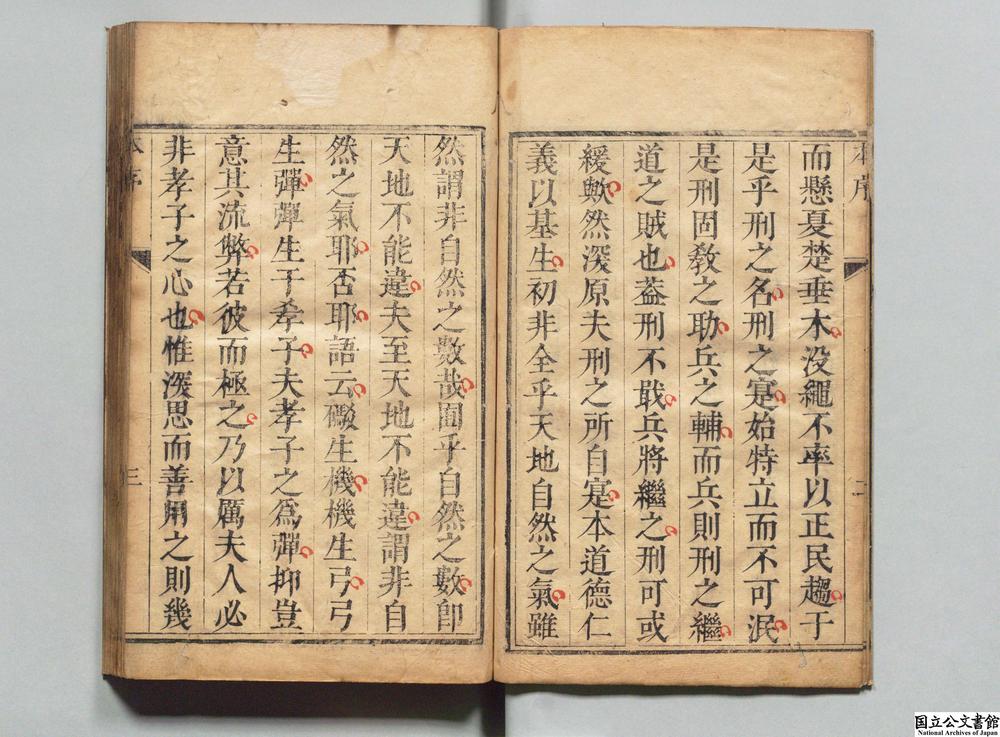 而懸夏楚垂木没繩不率以正民趨于
是乎刑之名刑之寔始特立而不可泯
是刑固敎之助兵之輔而兵則刑之繼
道之賊也葢刑不戢兵將繼之刑可或
緩歟然深原夫刑之所自寔本道德仁
義以基生初非全乎天地自然之氣雖
二
然謂非自然之數哉囿乎自然之數卽
天地不能違夫至天地不能違謂非自
然之氣耶否耶語云礟生機機生弓弓
生彈彈生于孝子夫孝子之爲彈抑豈
意其流弊若彼而極之乃以厲夫人必
非孝子之心也惟深思而善用之則幾
本序
三
国立公文書館
National Archives of Japan